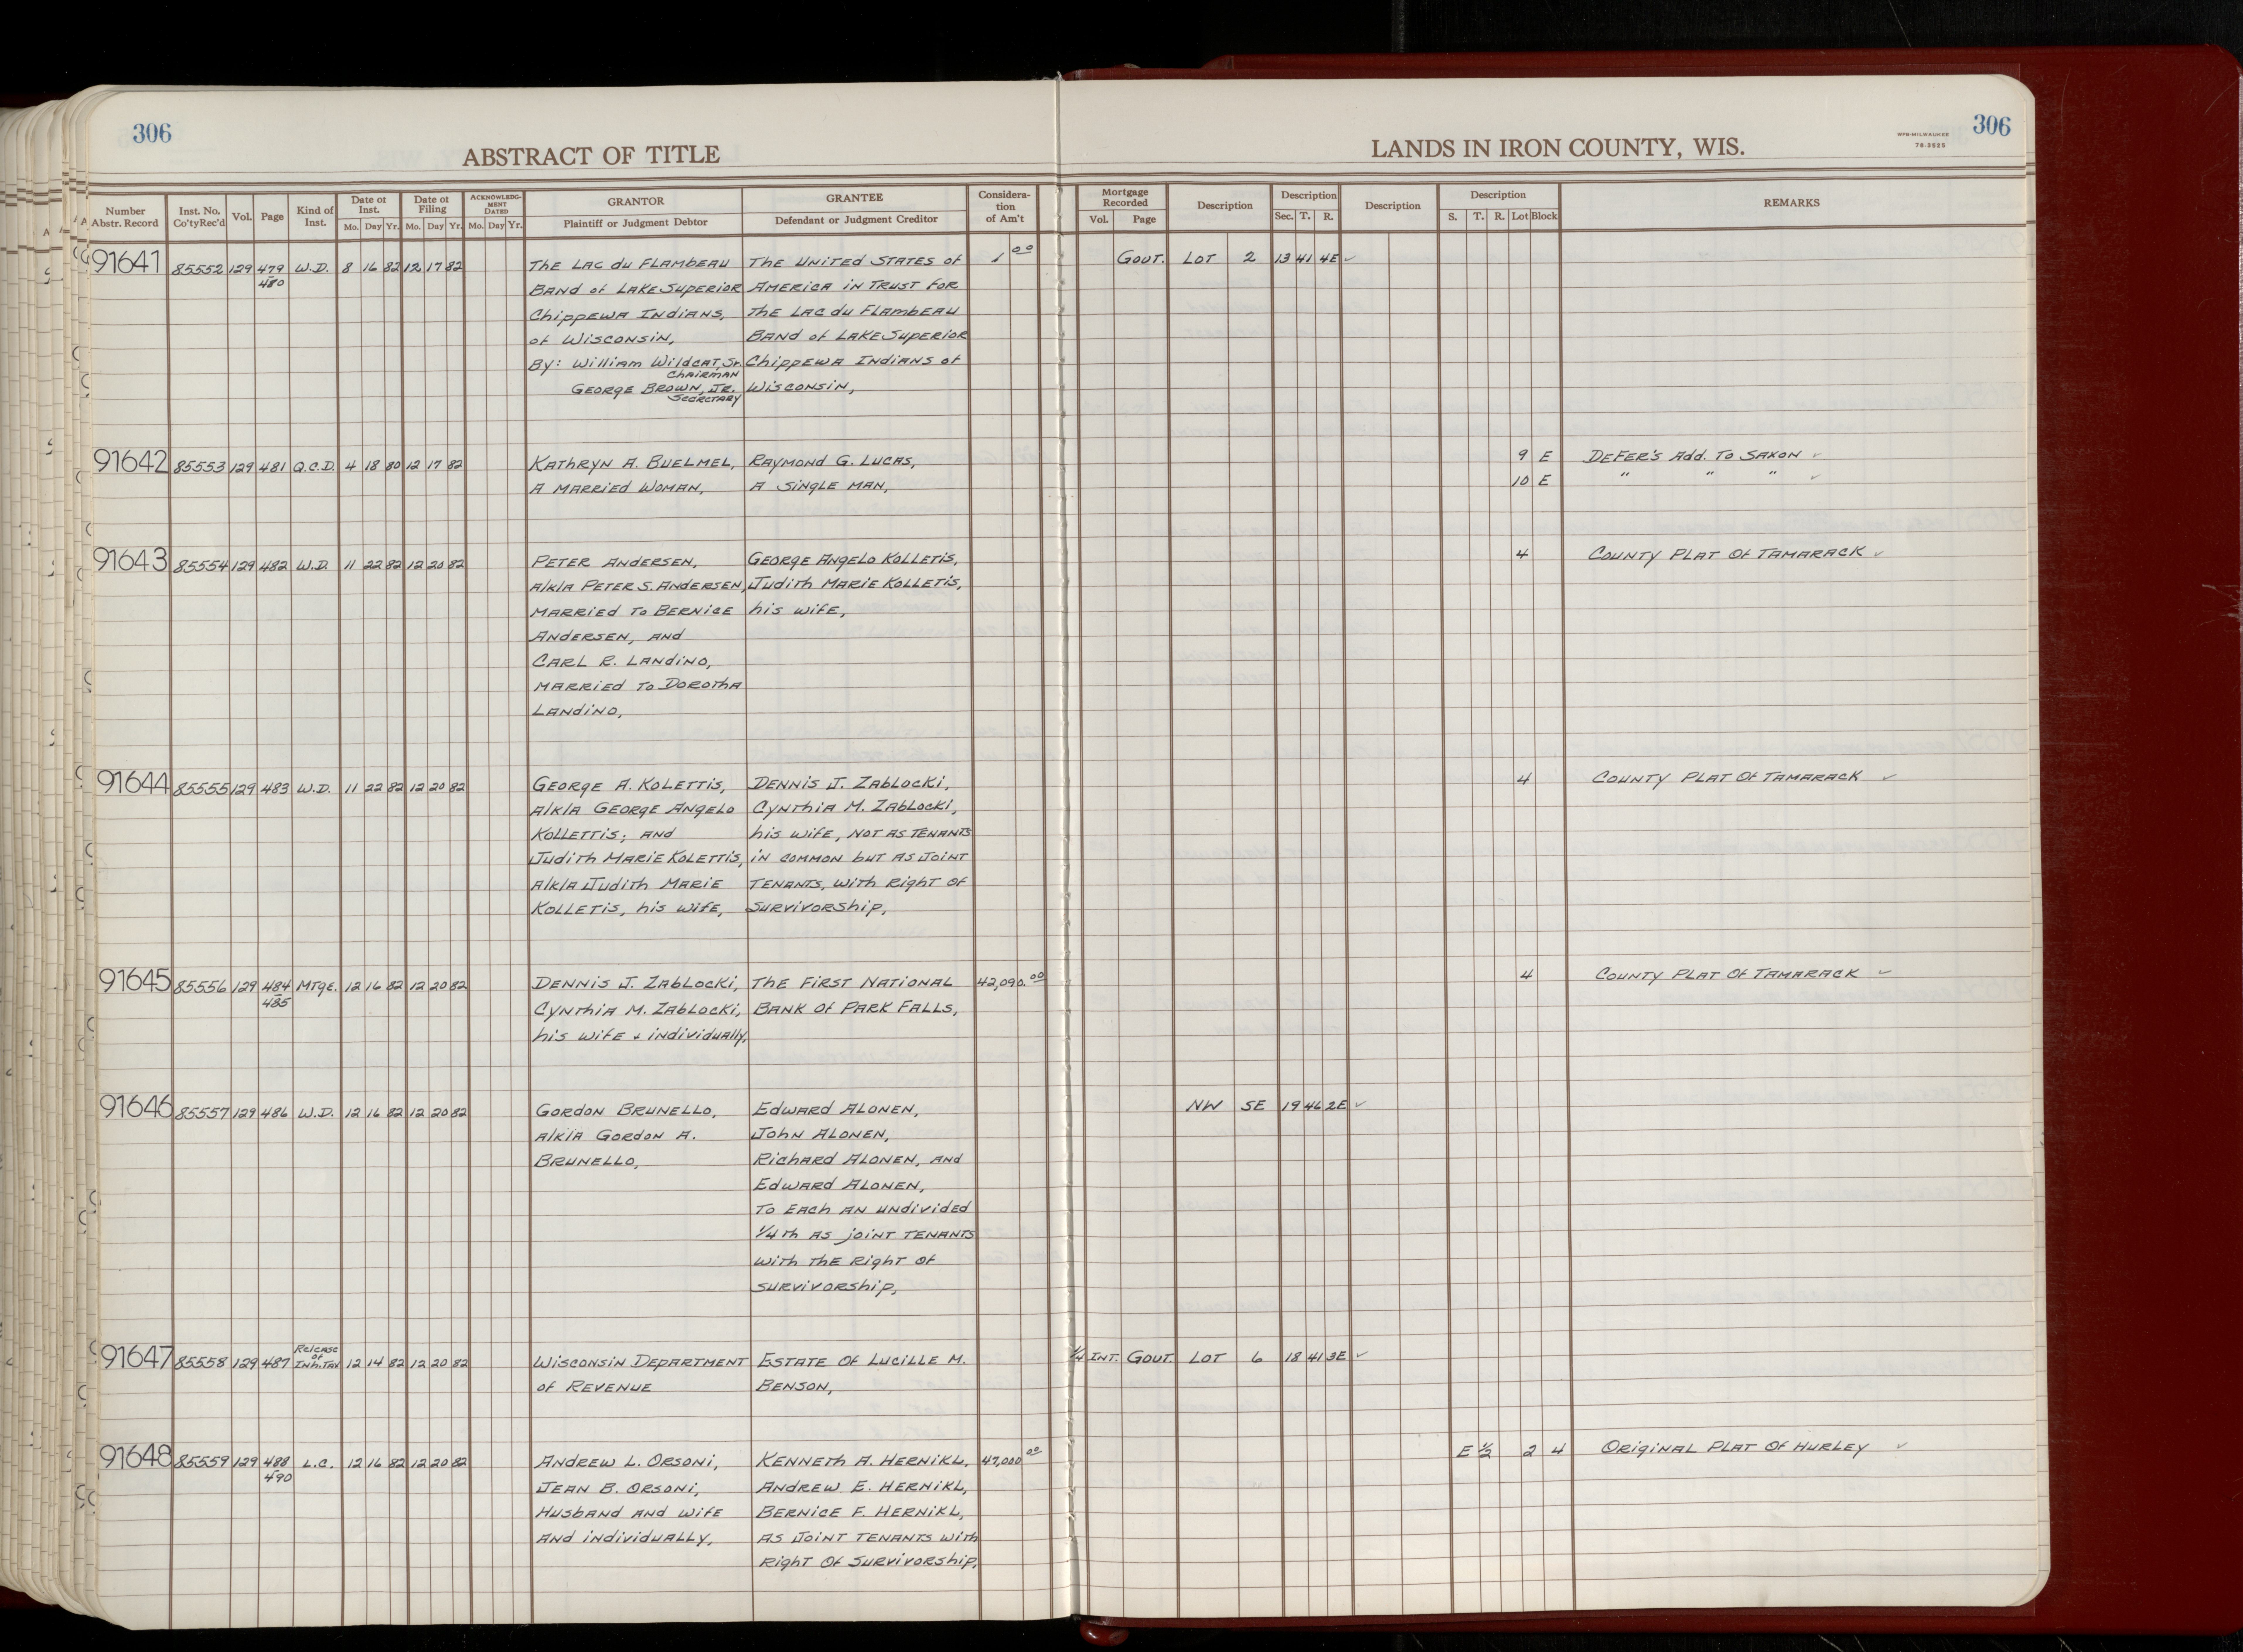 306
ABSTRACT OF TITLE
LANDS IN IRON COUNTY, WIS.
WPB-MILWAUKEE
78-3525
306
Number Abstr. Record | Inst. No. Co'ty Rec'd | Vol. | Page | Kind of Inst. | Date of Inst. Mo. Day Yr. | Date of Filing Mo. Day Yr. | ACKNOWLEDGMENT DATED Mo. Day Yr. | GRANTOR Plaintiff or Judgment Debtor | GRANTEE Defendant or Judgment Creditor | Considera-tion of Am't | Mortgage Recorded Vol. Page | Description | Description Sec. T. R. | Description | Description S. T. R. Lot Block | REMARKS
91641 85552 129 479 W.D. 8 16 82 12 17 82 The Lac du Flambeau The United States of 1 00 Gout. Lot 2 13 41 4E ✓
480
Band of Lake Superior America in Trust for
Chippewa Indians, The Lac du Flambeau
of Wisconsin, Band of Lake Superior
By: William Wildcat, Sr. Chippewa Indians of
Chairman
George Brown, Jr. Wisconsin,
Secretary
91642 85553 129 481 Q.C.D. 4 18 80 12 17 82 Kathryn A. Buelmel, Raymond G. Lucas, 9 E DeFer's Add. To Saxon ✓
A Married Woman, A Single Man, 10 E " " " ✓
91643 85554 129 482 W.D. 11 22 82 12 20 82 Peter Andersen, George Angelo Kolletis, 4 County Plat Of Tamarack ✓
a/k/a Peter S. Andersen, Judith Marie Kolletis,
Married To Bernice his wife,
Andersen, and
Carl R. Landino,
Married To Dorotha
Landino,
91644 85555 129 483 W.D. 11 22 82 12 20 82 George A. Kolettis, Dennis J. Zablocki, 4 County Plat Of Tamarack ✓
a/k/a George Angelo Cynthia M. Zablocki,
Kollettis; and his wife, not as tenants
Judith Marie Kolettis, in common but as joint
a/k/a Judith Marie tenants, with right of
Kolletis, his wife, survivorship,
91645 85556 129 484 Mtge. 12 16 82 12 20 82 Dennis J. Zablocki, The First National 42,090.00 4 County Plat Of Tamarack ✓
485
Cynthia M. Zablocki, Bank Of Park Falls,
his wife + individually,
91646 85557 129 486 W.D. 12 16 82 12 20 82 Gordon Brunello, Edward Alonen, NW SE 19 46 2E ✓
a/k/a Gordon A. John Alonen,
Brunello, Richard Alonen, and
Edward Alonen,
To each an undivided
1/4th as joint tenants
with the right of
survivorship,
91647 85558 129 487 Release of Inh. Tax 12 14 82 12 20 82 Wisconsin Department Estate Of Lucille M. 1/4 Int. Gout. Lot 6 18 41 3E ✓
of Revenue Benson,
91648 85559 129 488 L.C. 12 16 82 12 20 82 Andrew L. Orsoni, Kenneth A. Hernikl, 47,000 00 E 1/2 2 4 Original Plat Of Hurley ✓
490
Jean B. Orsoni, Andrew E. Hernikl,
Husband and wife Bernice F. Hernikl,
and individually, as joint tenants with
right of survivorship,